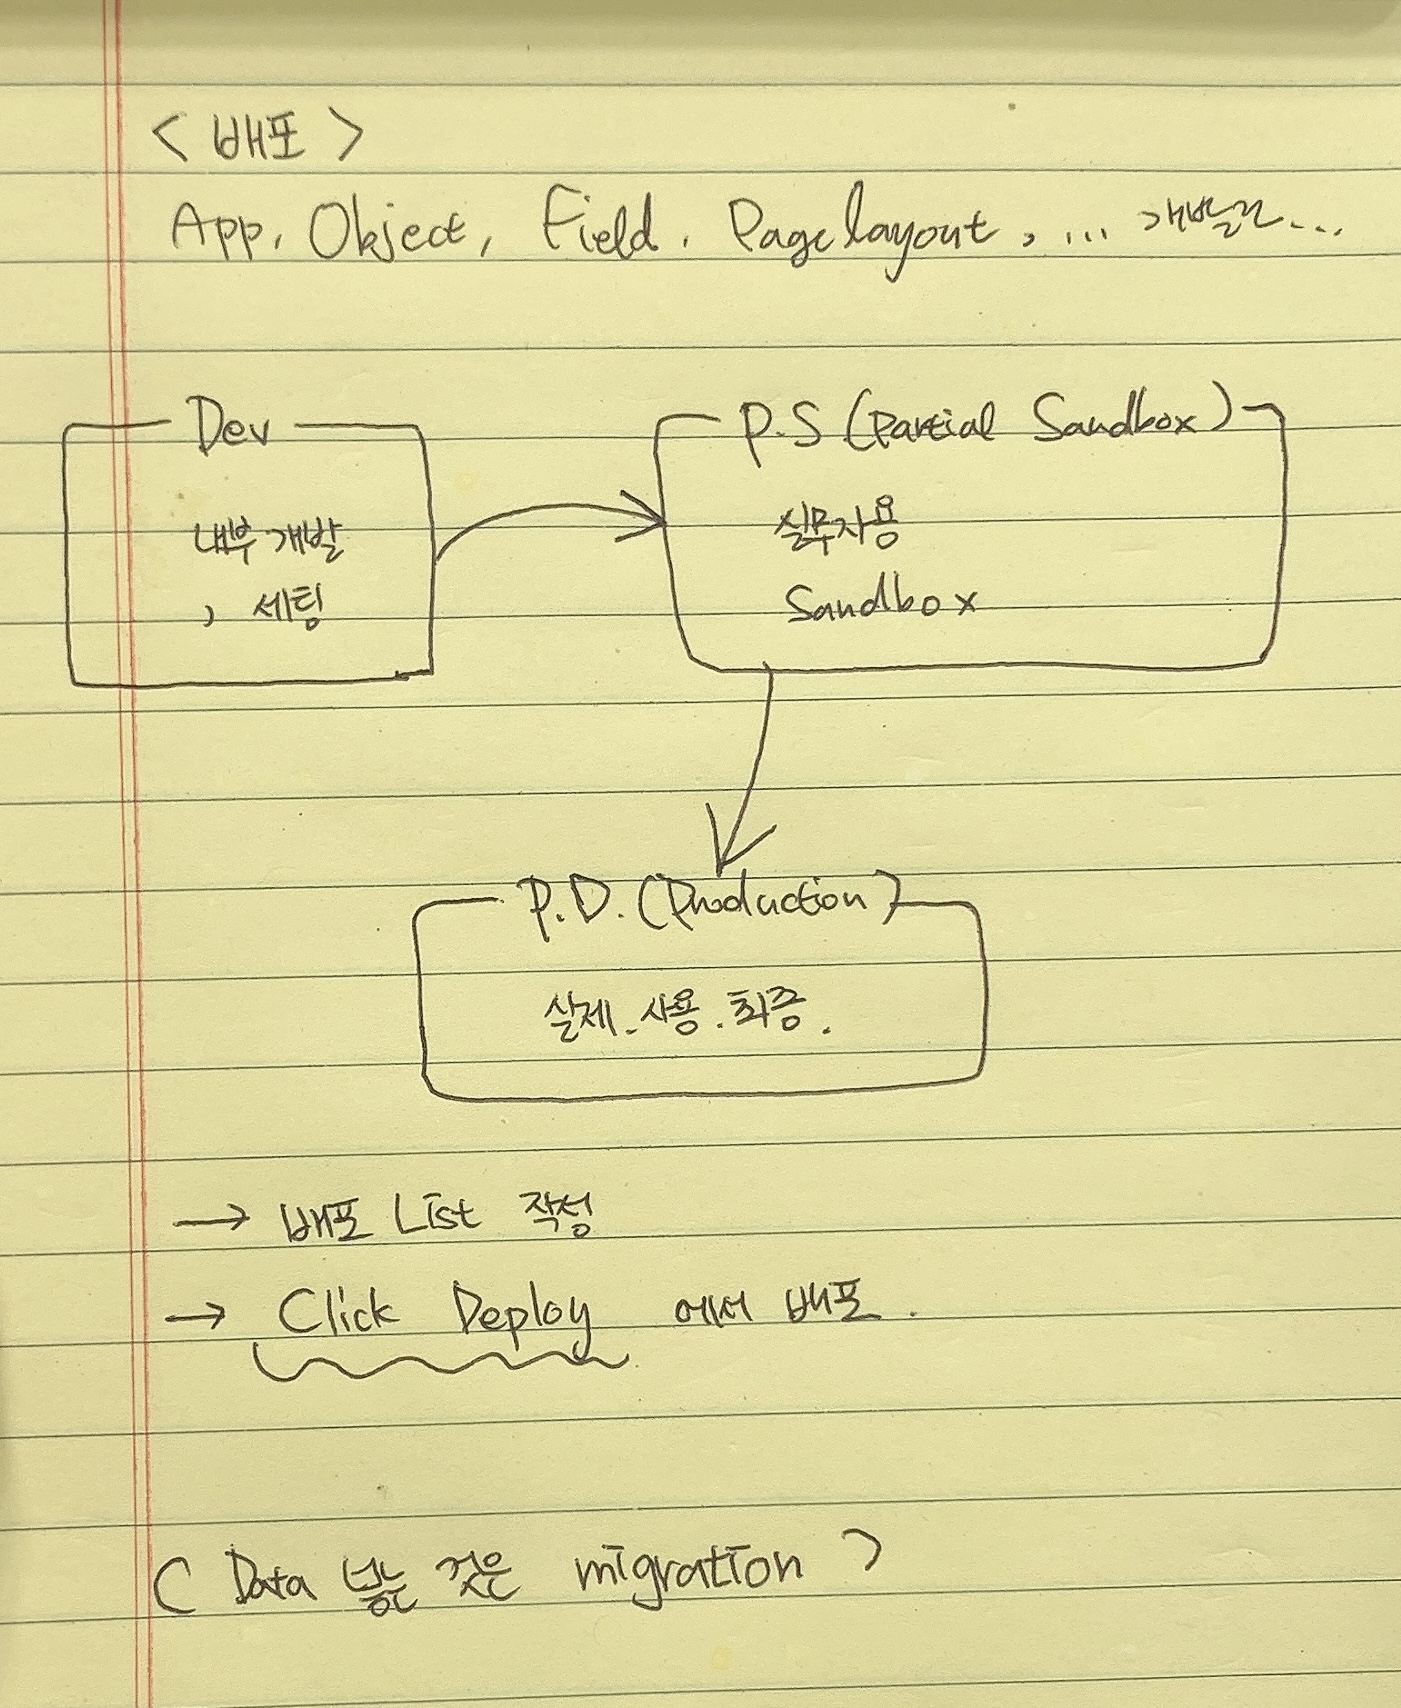 < 배포 >
App, Object, Field, Page layout, ... 개발근...
Dev
내부 개발
, 세팅
P.S (Partial Sandbox)
실무자용
Sandbox
P.D. (Production)
실제. 사용. 최종.
→ 배포 List 작성
→ Click Deploy 에서 배포.
( Data 넣는 것은 migration )